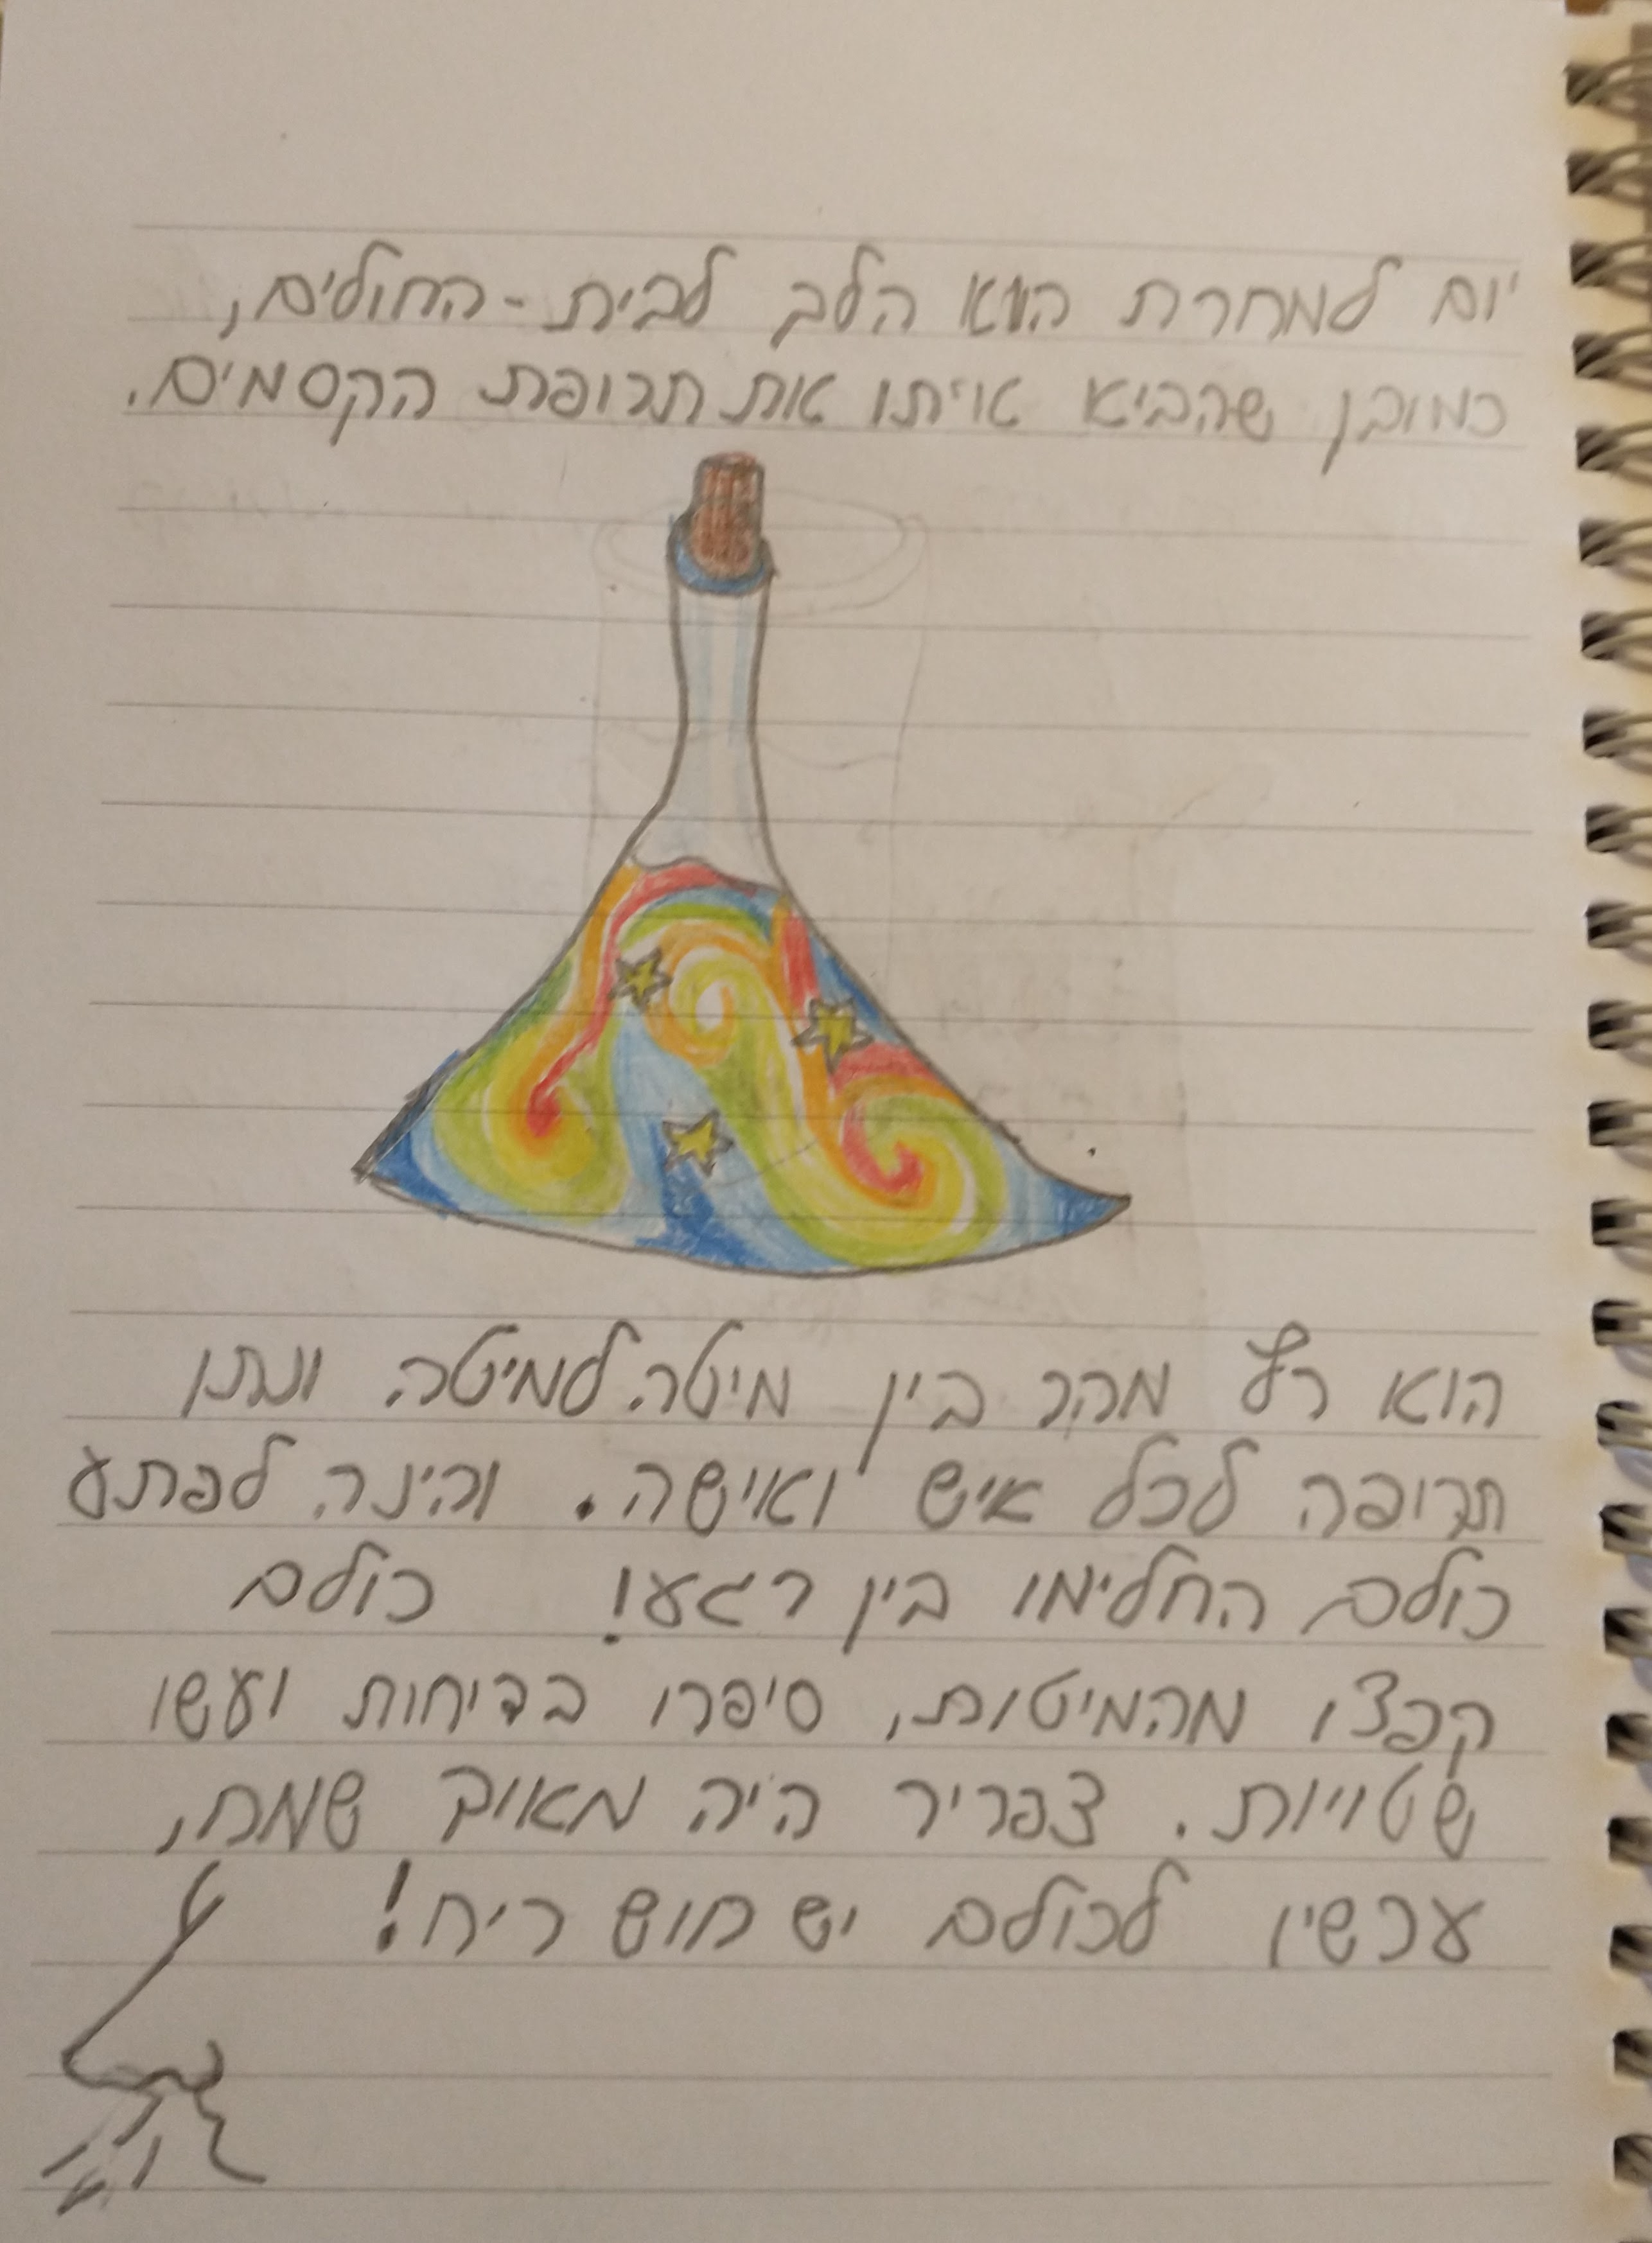 יום למחרת הוא הלך לבית-החולים,
כמובן שהביא איתו את תרופת הקסמים.
הוא רץ מהר בין מיטה למיטה ונתן
תרופה לכל איש ואישה. והינה לפתע
כולם החלימו בין רגע! כולם
קפצו מהמיטות, סיפרו בדיחות ועשו
שטויות. צפריר היה מאוד שמח,
עכשיו לכולם יש חוש ריח!